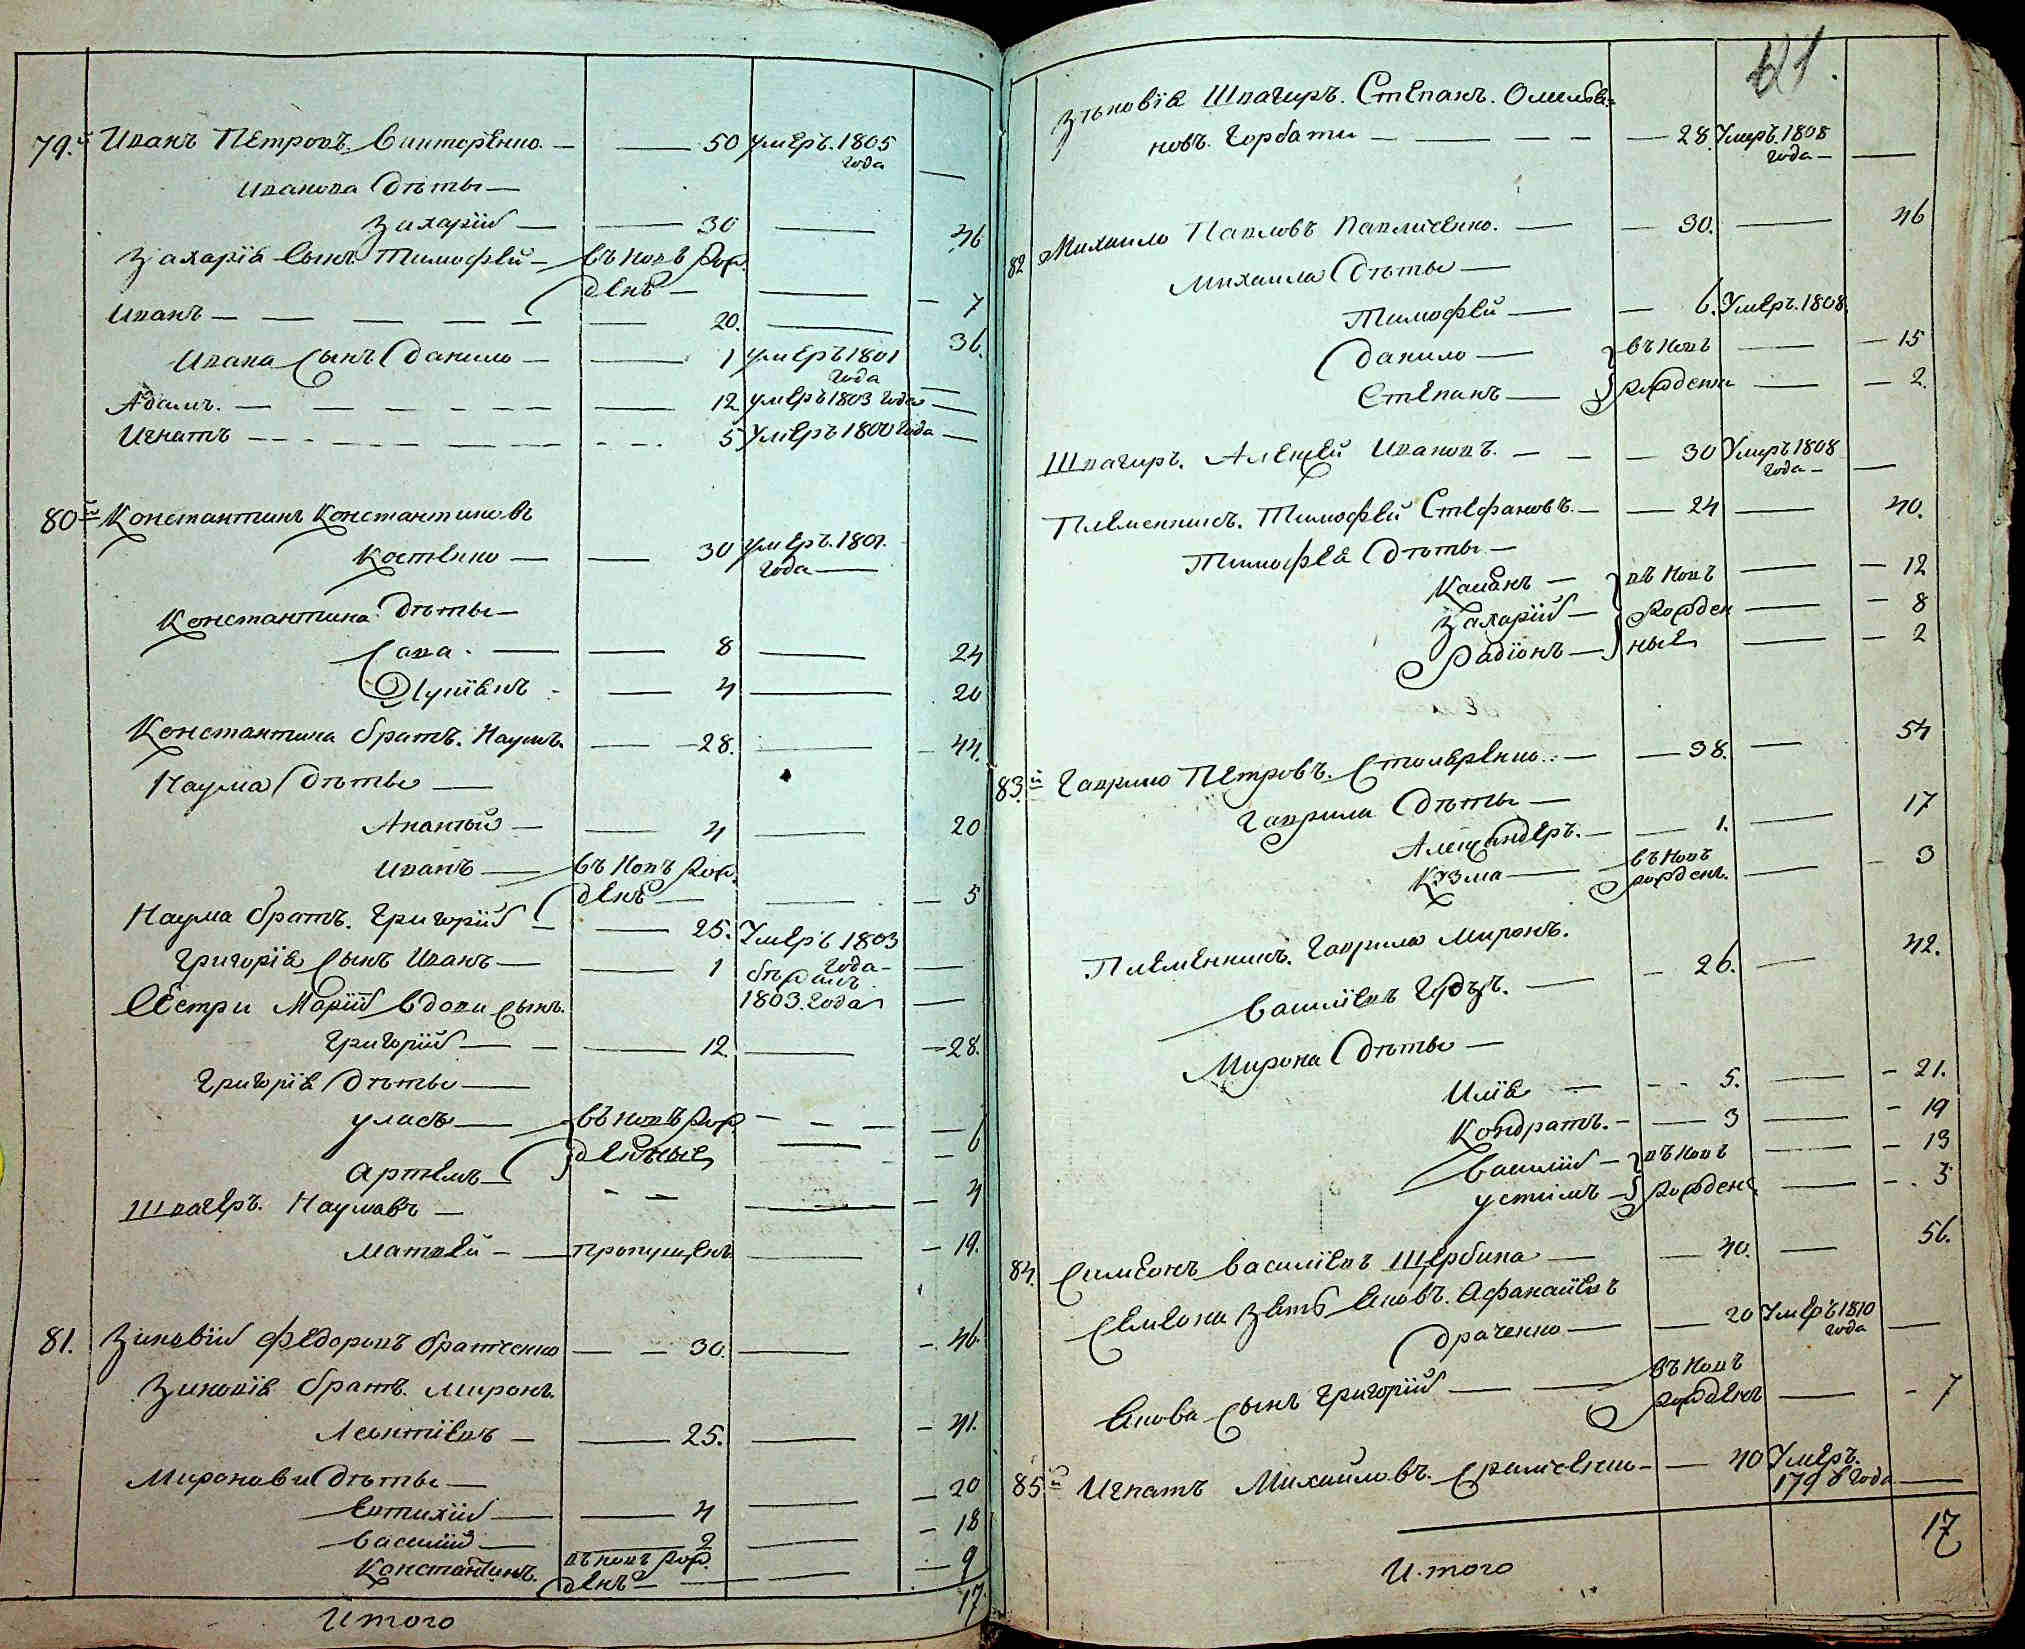 79.й Иванъ Петровъ Винторенко. — 50 умеръ. 1805 года —
Иванова Дѣты —
Захарїй — 30 — 46
Захарїя Сынъ Тимофей — въ новь рожденъ — 7
Иванъ — 20. — 36.
Ивана Сынъ Данило — 1 умеръ 1801 года —
Адамъ. — 12 умеръ 1803 года —
Игнатъ — 5 умеръ 1800 года —
80й Константинъ Константиновъ
Костенко — 30 умеръ. 1801. года —
Константина Дѣты —
Сава. — 8 — 24
Лукїянъ — 4 — 20
Константина братъ. Наумъ. — 28. — 44.
Наума Дѣты —
Ананїй — 4 — 20
Иванъ — въ новъ рожденъ — 5
Наума братъ. Григорїй — 25. Умеръ 1803 года —
Григорїя Сынъ Иванъ — 1 бѣжалъ 1803. года —
Сестри Марїй вдови сынъ.
Григорїй — 12. — 28.
Григорїя Дѣты —
уласъ — въ новъ рожденные — 6
Артемъ — 4
Швагеръ. Наумавъ —
Матвей — пропущенъ — 19.
81. Зиновїй Федоровъ Братченко — 30. — 46.
Зиновїя братъ. Миронъ.
Леонтїевъ — 25. — 41.
Миронови Дѣты —
Евтихїй — 4 — 20
Василїй — 2 — 18
Константинъ. въ новъ рожденъ — 9
Итого 17.
41.
Зѣновїя Швагиръ. Степанъ. Омелья=
новъ. Горбати — 28. Умеръ. 1808 года —
82 Михайло Павловъ Павличенко. — 30. — 46
Михаила Дѣты —
Тимофей — 6. Умеръ. 1808
Данило — въ новъ — 15
Степанъ — рождены — 2.
Швагиръ. Алексей Ивановъ. — 30 Умеръ 1808 года —
Племенникъ. Тимофей Стефановъ. — 24 — 40.
Тимофея Дѣты —
Касянъ — въ новъ — 12
Захарїй — рожден — 8
Радїонъ — ные — 2
83.й Гаврило Петровъ. Столяренко. — 38. — 54
Гаврила Дѣты —
Александеръ. — 1. — 17
Кузма — въ новъ рожденъ. — 3
Племенникъ. Гаврила Миронъ.
Василїевъ — 26. — 42.
Мирона Дѣты —
Илїя — 5. — 21.
Кондратъ. — 3 — 19
Василїй — въ новъ — 13
устимъ — рождены — 3
84. Симеонъ Василїевъ Щербина — 40. — 56.
Семеона Зять Яковъ. Афанасїевъ
Драченко — 20 Умеръ 1810 года —
Якова Сынъ Григорїй — въ новъ рожденъ — 7
85й Игнатъ Михайловъ. — 40 Умеръ. 1798 года —
Итого 17